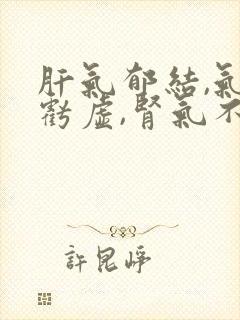 肝氣郁結,氣
虧虛,腎氣不
許昆崢